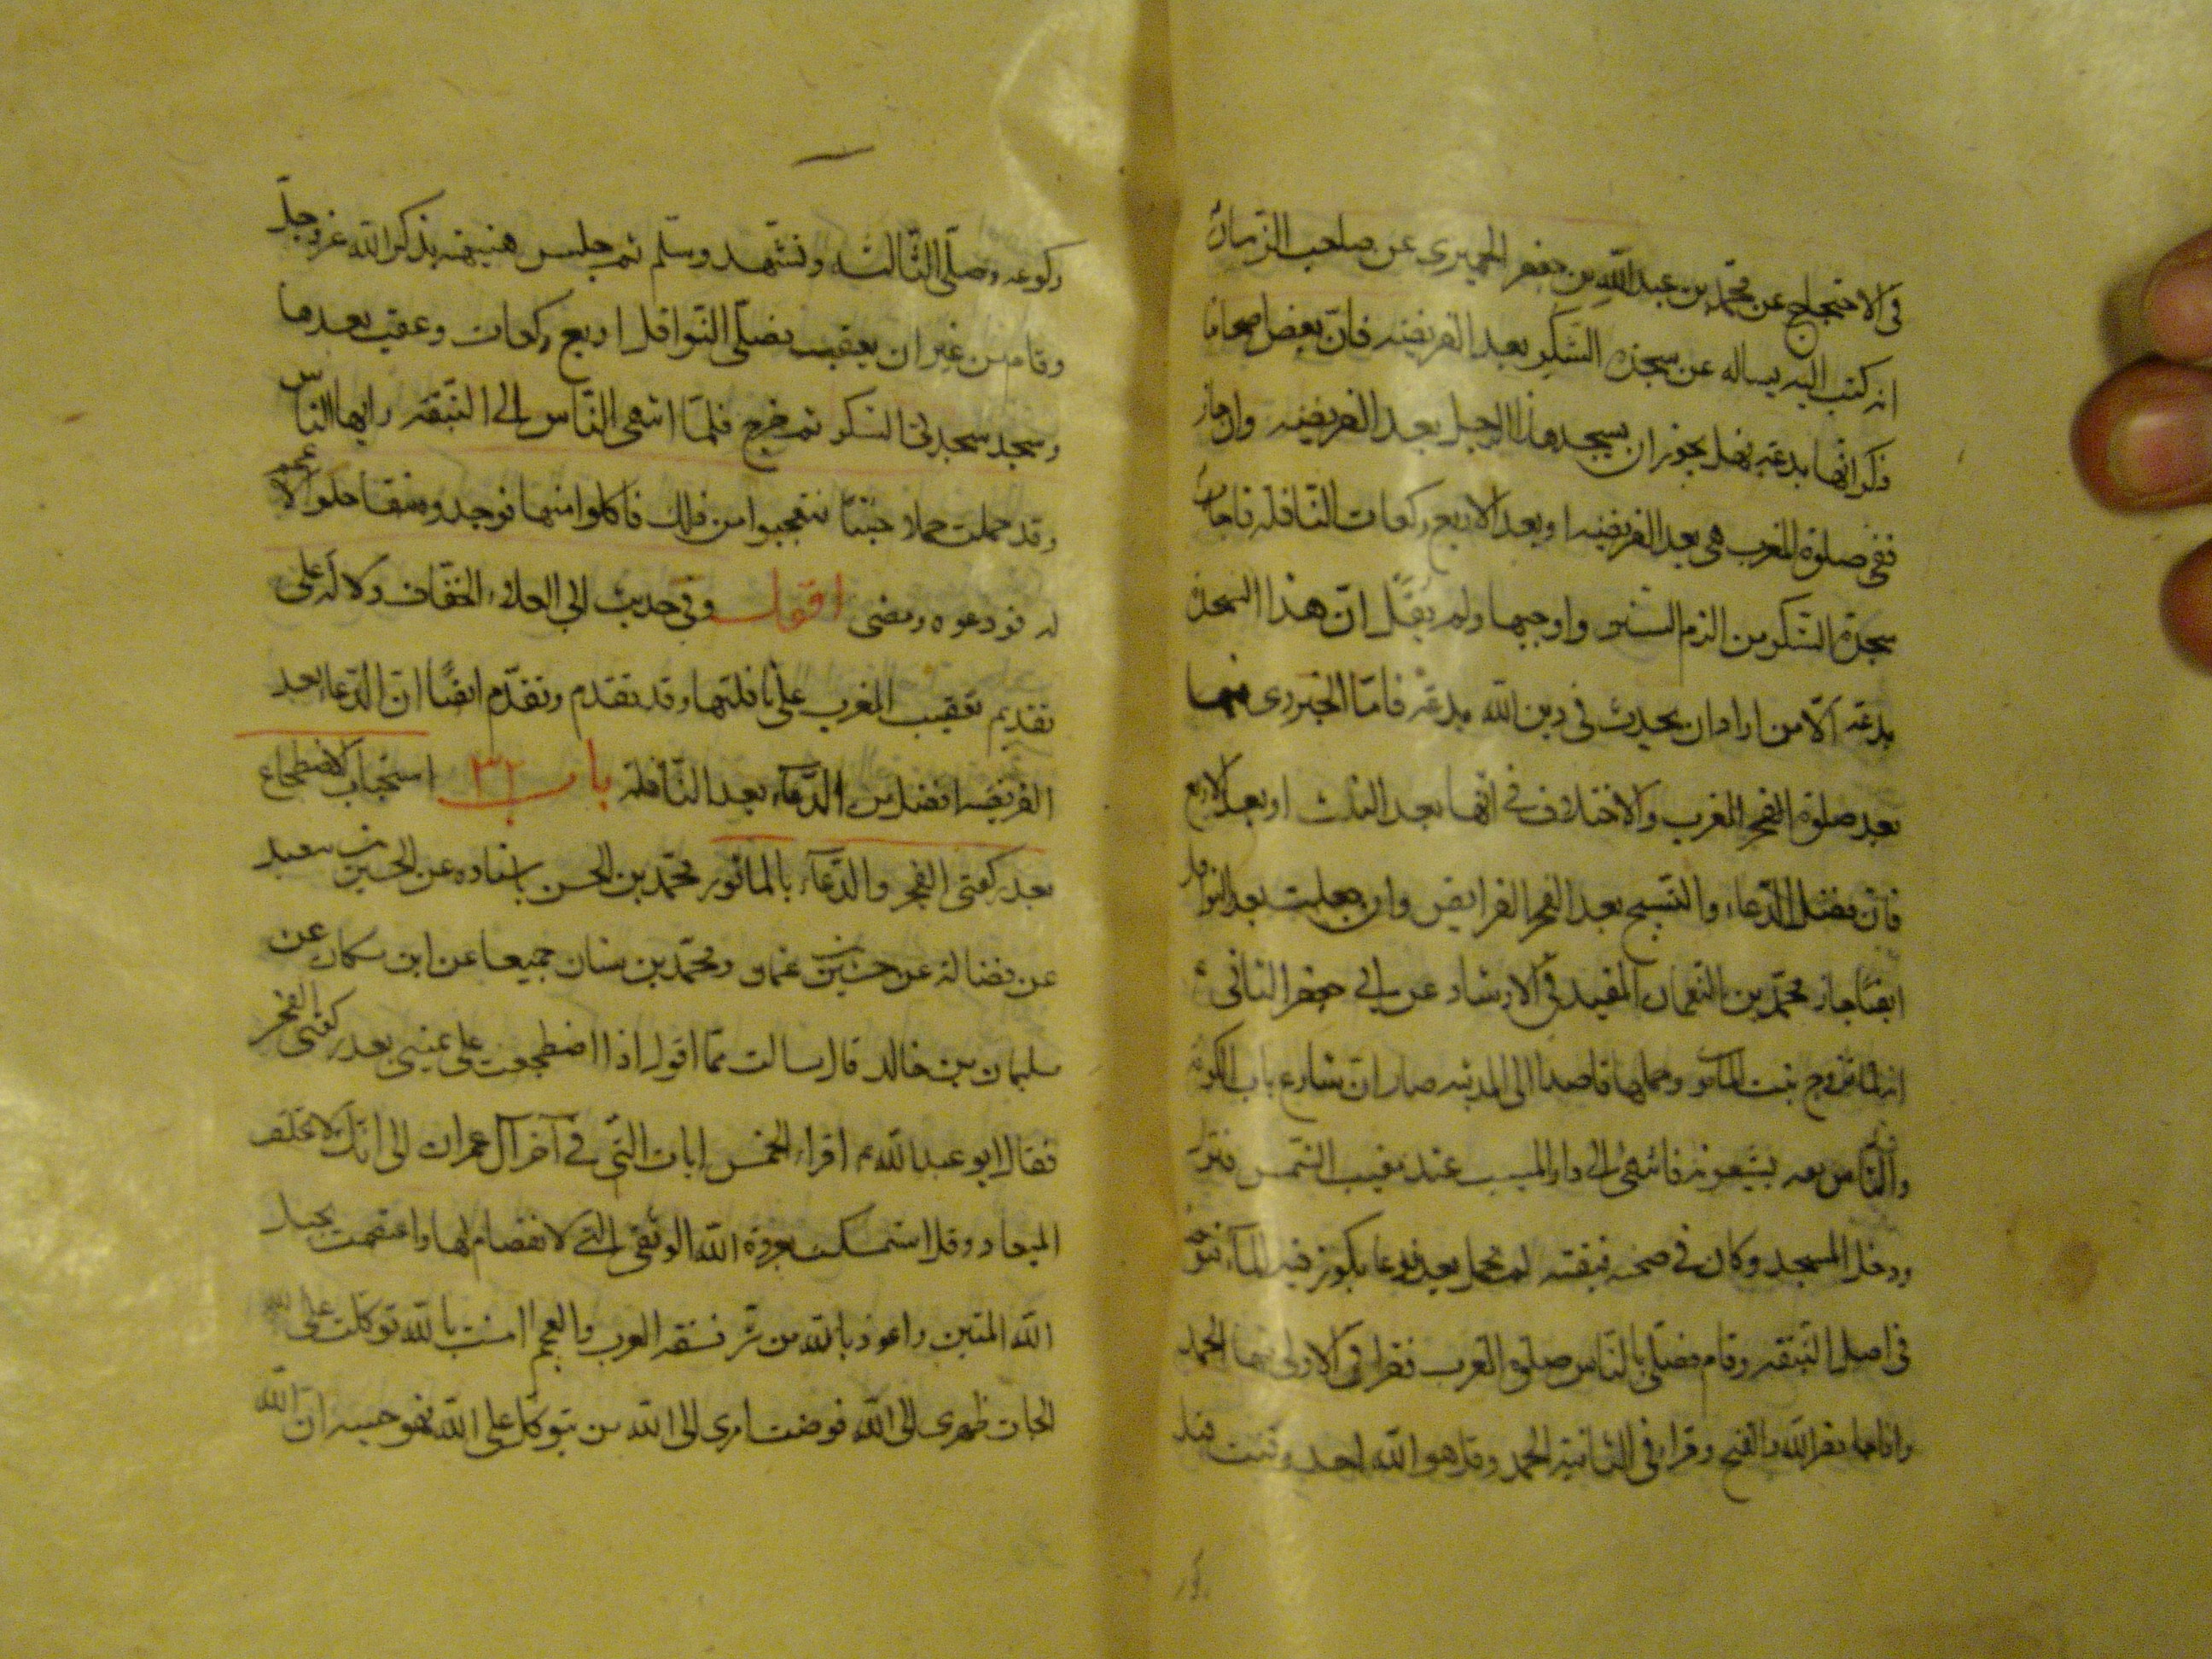 في الاحتجاج عن محمد بن عبد الله بن جعفر الحميري عن صاحب الزمان
انه كتب اليه يساله عن سجدة الشكر بعد الفريضه فان بعض اصحابنا
ذكر انها بدعة فهل يجوز ان يسجدها الرجل بعد الفريضه وان جاز
ففي صلوة المغرب هي بعد الفريضه او بعد الاربع ركعات النافلة فاجاب
سجدة الشكر من الزم السنن واوجبها ولم يقل ان هذه السجدة
بدعة الا من اراد ان يحدث في دين الله بدعة فاما الخبر المروي فيها
بعد صلوة المغرب والاختلاف في انها بعد الثلث او بعد الاربع
فان فضل الدعاء والتسبيح بعد الفرايض وان جعلت بعد النوافل
ايضا جاز محمد بن النعمان المفيد في الارشاد عن ابي جعفر الثاني ع
انه لما تزوج بنت المامون وحملها قاصدا الى المدينه صار الى شارع باب الكوفة
والناس معه يشيعونه فانتهى الى دار المسيب عند مغيب الشمس فنزل
ودخل المسجد وكان في صحنه نبقته لم تحمل بعد فدعا بكوز فيه الماء فتوضا
في اصل النبقه وقام فصلى بالناس صلوة المغرب فقرا في الاولى منها الحمد
واذا جاء نصر الله والفتح وقراء في الثانية الحمد وقل هو الله احد وقنت قبل
ركوعه وصلى الثالثه وتشهد وسلم ثم جلس هنيهة يذكر الله عز وجل
وقام من غير ان يعقب فصلى النوافل اربع ركعات وعقب بعدها
وسجد سجدتي الشكر ثم خرج فلما انتهى الناس الى النبقة راها الناس
وقد حملت حملا حسنا فتعجبوا من ذلك فاكلوا منها فوجدوه نبقا حلوا لا عجم
له فودعوه ومضى اقول وفي حديث ابي العلاء الخفاف دلالة على
تقديم تعقيب المغرب على نافلتها وقد تقدم وتقدم ايضا ان الدعاء بعد
الفريضه افضل من الدعاء بعد النافلة باب ٣٢ استحباب الاضطجاع
بعد ركعتي الفجر والدعاء بالماثور محمد بن الحسن باسناده عن الحسين بن سعيد
عن فضالة عن حسين بن عثمان ومحمد بن سنان جميعا عن ابن مسكان عن
سليمان بن خالد قال سالت عما اقول اذا اضطجعت على يميني بعد ركعتي الفجر
فقال ابو عبد الله ع اقراء الخمس ايات التي في آخر آل عمران الى انك لا تخلف
الميعاد وقل استمسكت بعروة الله الوثقى التي لا انفصام لها واعتصمت بحبل
الله المتين واعوذ بالله من شر فسقه العرب والعجم امنت بالله توكلت على الله
الجات ظهري الى الله فوضت امري الى الله من يتوكل على الله فهو حسبه ان الله